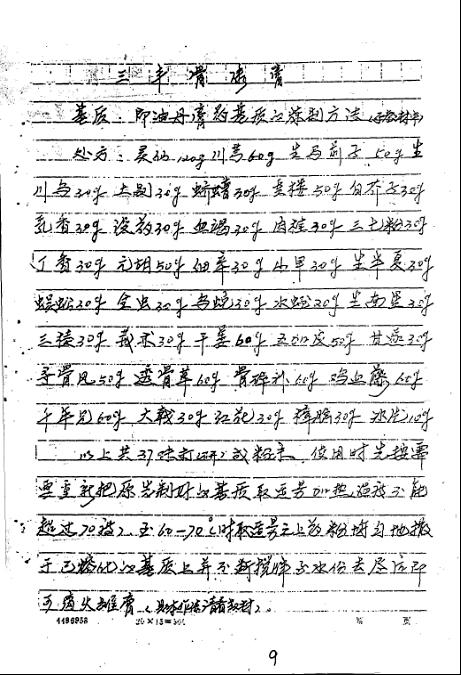 三 丰 骨 刺 膏
基质：即油丹膏药基质的炼制方法（各教材中）
处方：灵仙120g 川芎60g 生马前子50g 生
川乌30g 土鳖30g 蛴螬30g 姜楼50g 白芥子30g
乳香30g 没药30g 血竭30g 肉桂30g 三七粉30g
丁香30g 元胡50g 细辛30g 山甲30g 生半夏30g
蜈蚣30g 全虫30g 乌蛇30g 水蛭20g 生南星30g
三棱30g 莪术30g 干姜60g 五加皮50g 甘遂30g
寻骨风50g 透骨草60g 骨碎补60g 鸡血藤60g
千年见60g 大戟30g 红花30g 樟脑30g 冰片10g
以上共37味打研成粉末，使用时先按需
要重新把原先制好的基质取适量加热温度不能
超过70度，至60-70℃时取适量之上药粉均匀地撒
于已熔化的基质上并不断搅拌至水份去尽后即
可离火摊膏（具体作法请看教材）。
4496958 20×15=300 第 页
9